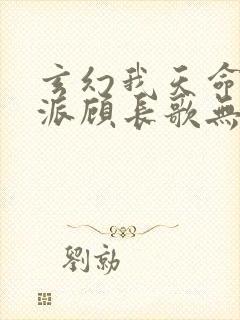 玄幻我天命
派顾长歌無
劉勍